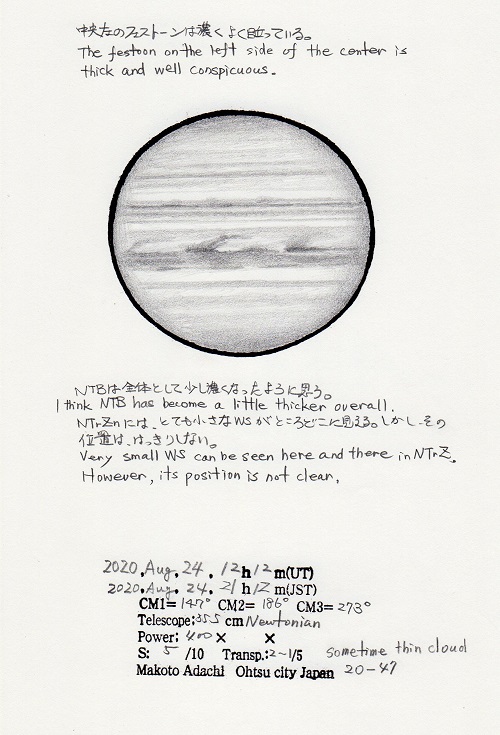 中央左のフェストーンは濃くよく目立っている。
The festoon on the left side of the center is
thick and well conspicuous.
NTBは全体として少し濃くなったように思う。
I think NTB has become a little thicker overall.
NTrZnには、とても小さなWSがところどこに見える。しかし、その
位置は、はっきりしない。
Very small WS can be seen here and there in NTrZ.
However, its position is not clear.
2020.Aug.24. 12h12m(UT)
2020.Aug.24. 21h12m(JST)
CM1=147° CM2=186° CM3=273°
Telescope:355 cm Newtonian
Power: 400× ×
S: 5 /10 Transp.:2~1/5 sometime thin cloud
Makoto Adachi Ohtsu city Japan 20-47